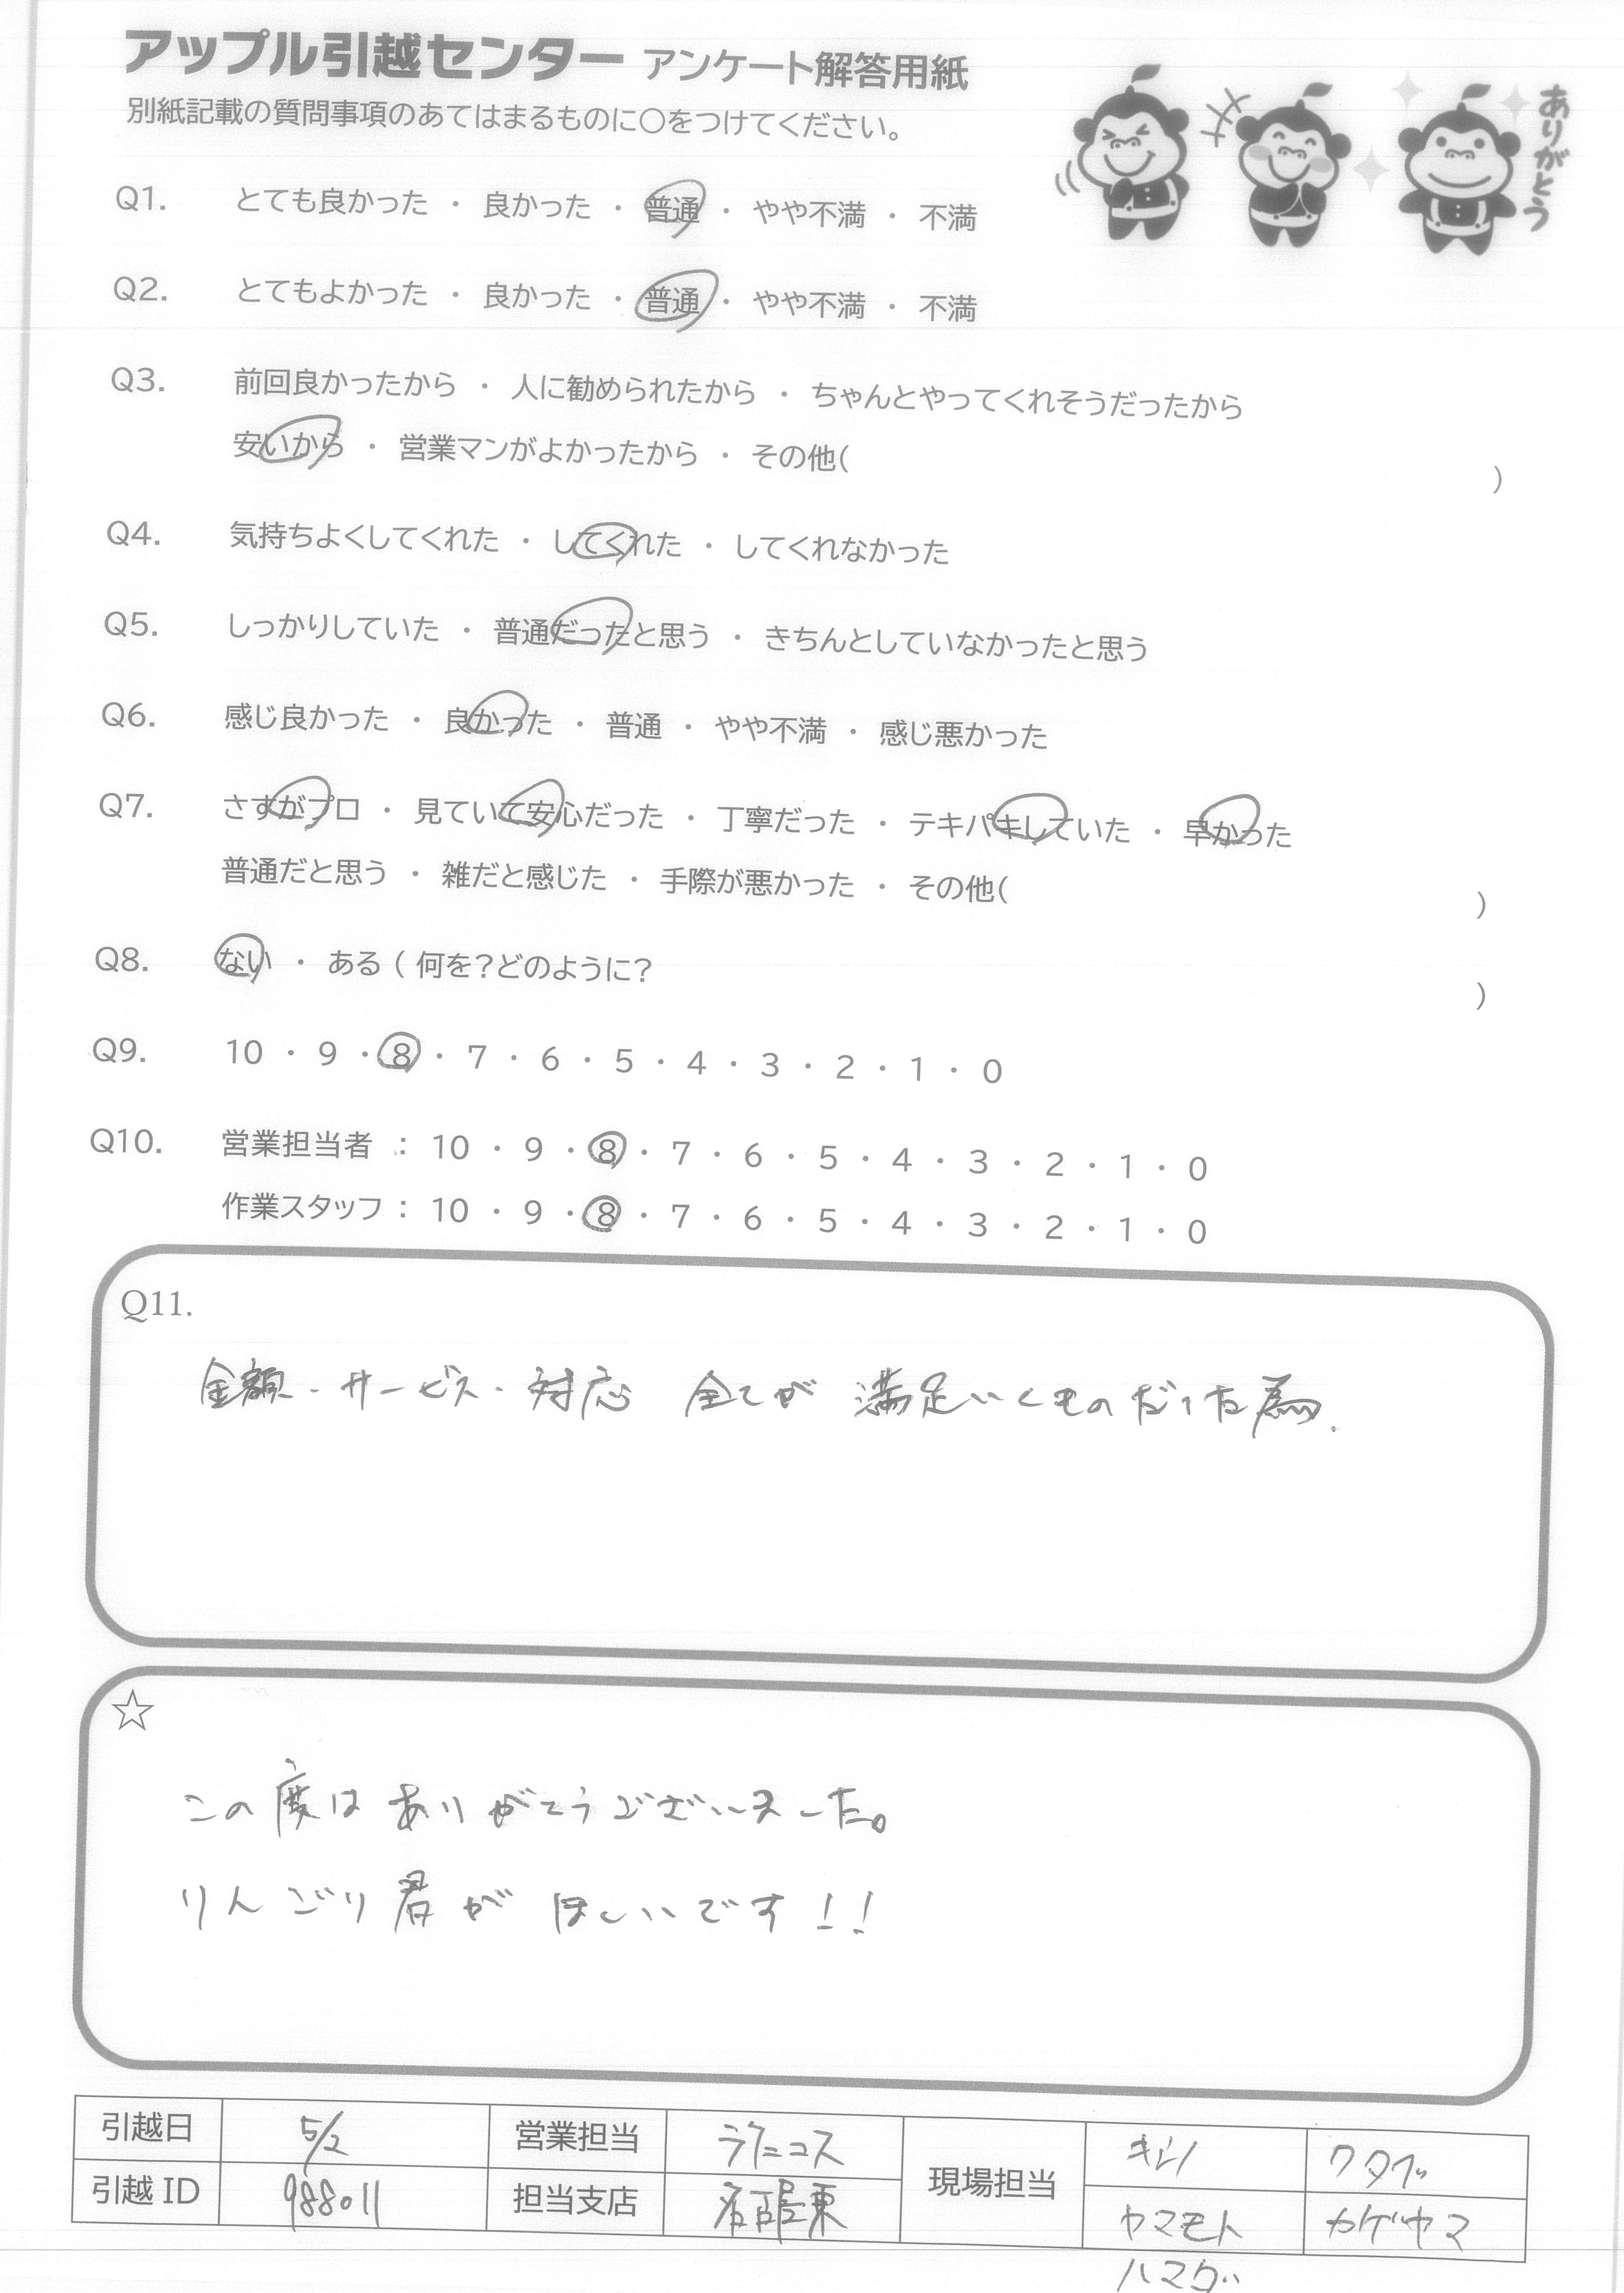 アップル引越センター アンケート解答用紙
別紙記載の質問事項のあてはまるものに○をつけてください。
ありがとう
Q1. とても良かった ・ 良かった ・ 普通 ・ やや不満 ・ 不満
Q2. とてもよかった ・ 良かった ・ 普通 ・ やや不満 ・ 不満
Q3. 前回良かったから ・ 人に勧められたから ・ ちゃんとやってくれそうだったから
安いから ・ 営業マンがよかったから ・ その他( )
Q4. 気持ちよくしてくれた ・ してくれた ・ してくれなかった
Q5. しっかりしていた ・ 普通だったと思う ・ きちんとしていなかったと思う
Q6. 感じ良かった ・ 良かった ・ 普通 ・ やや不満 ・ 感じ悪かった
Q7. さすがプロ ・ 見ていて安心だった ・ 丁寧だった ・ テキパキしていた ・ 早かった
普通だと思う ・ 雑だと感じた ・ 手際が悪かった ・ その他( )
Q8. ない ・ ある ( 何を?どのように? )
Q9. 10 ・ 9 ・ 8 ・ 7 ・ 6 ・ 5 ・ 4 ・ 3 ・ 2 ・ 1 ・ 0
Q10. 営業担当者 : 10 ・ 9 ・ 8 ・ 7 ・ 6 ・ 5 ・ 4 ・ 3 ・ 2 ・ 1 ・ 0
作業スタッフ : 10 ・ 9 ・ 8 ・ 7 ・ 6 ・ 5 ・ 4 ・ 3 ・ 2 ・ 1 ・ 0
Q11.
金額・サービス・対応 全てが 満足いくものだった為.
☆
この度はありがとうございました。
りんごり君が ほしいです!!
引越日 5/2 営業担当 現場担当 ワタナベ
引越ID 988011 担当支店 名古屋東 ヤマモト カゲヤマ
ハマグ